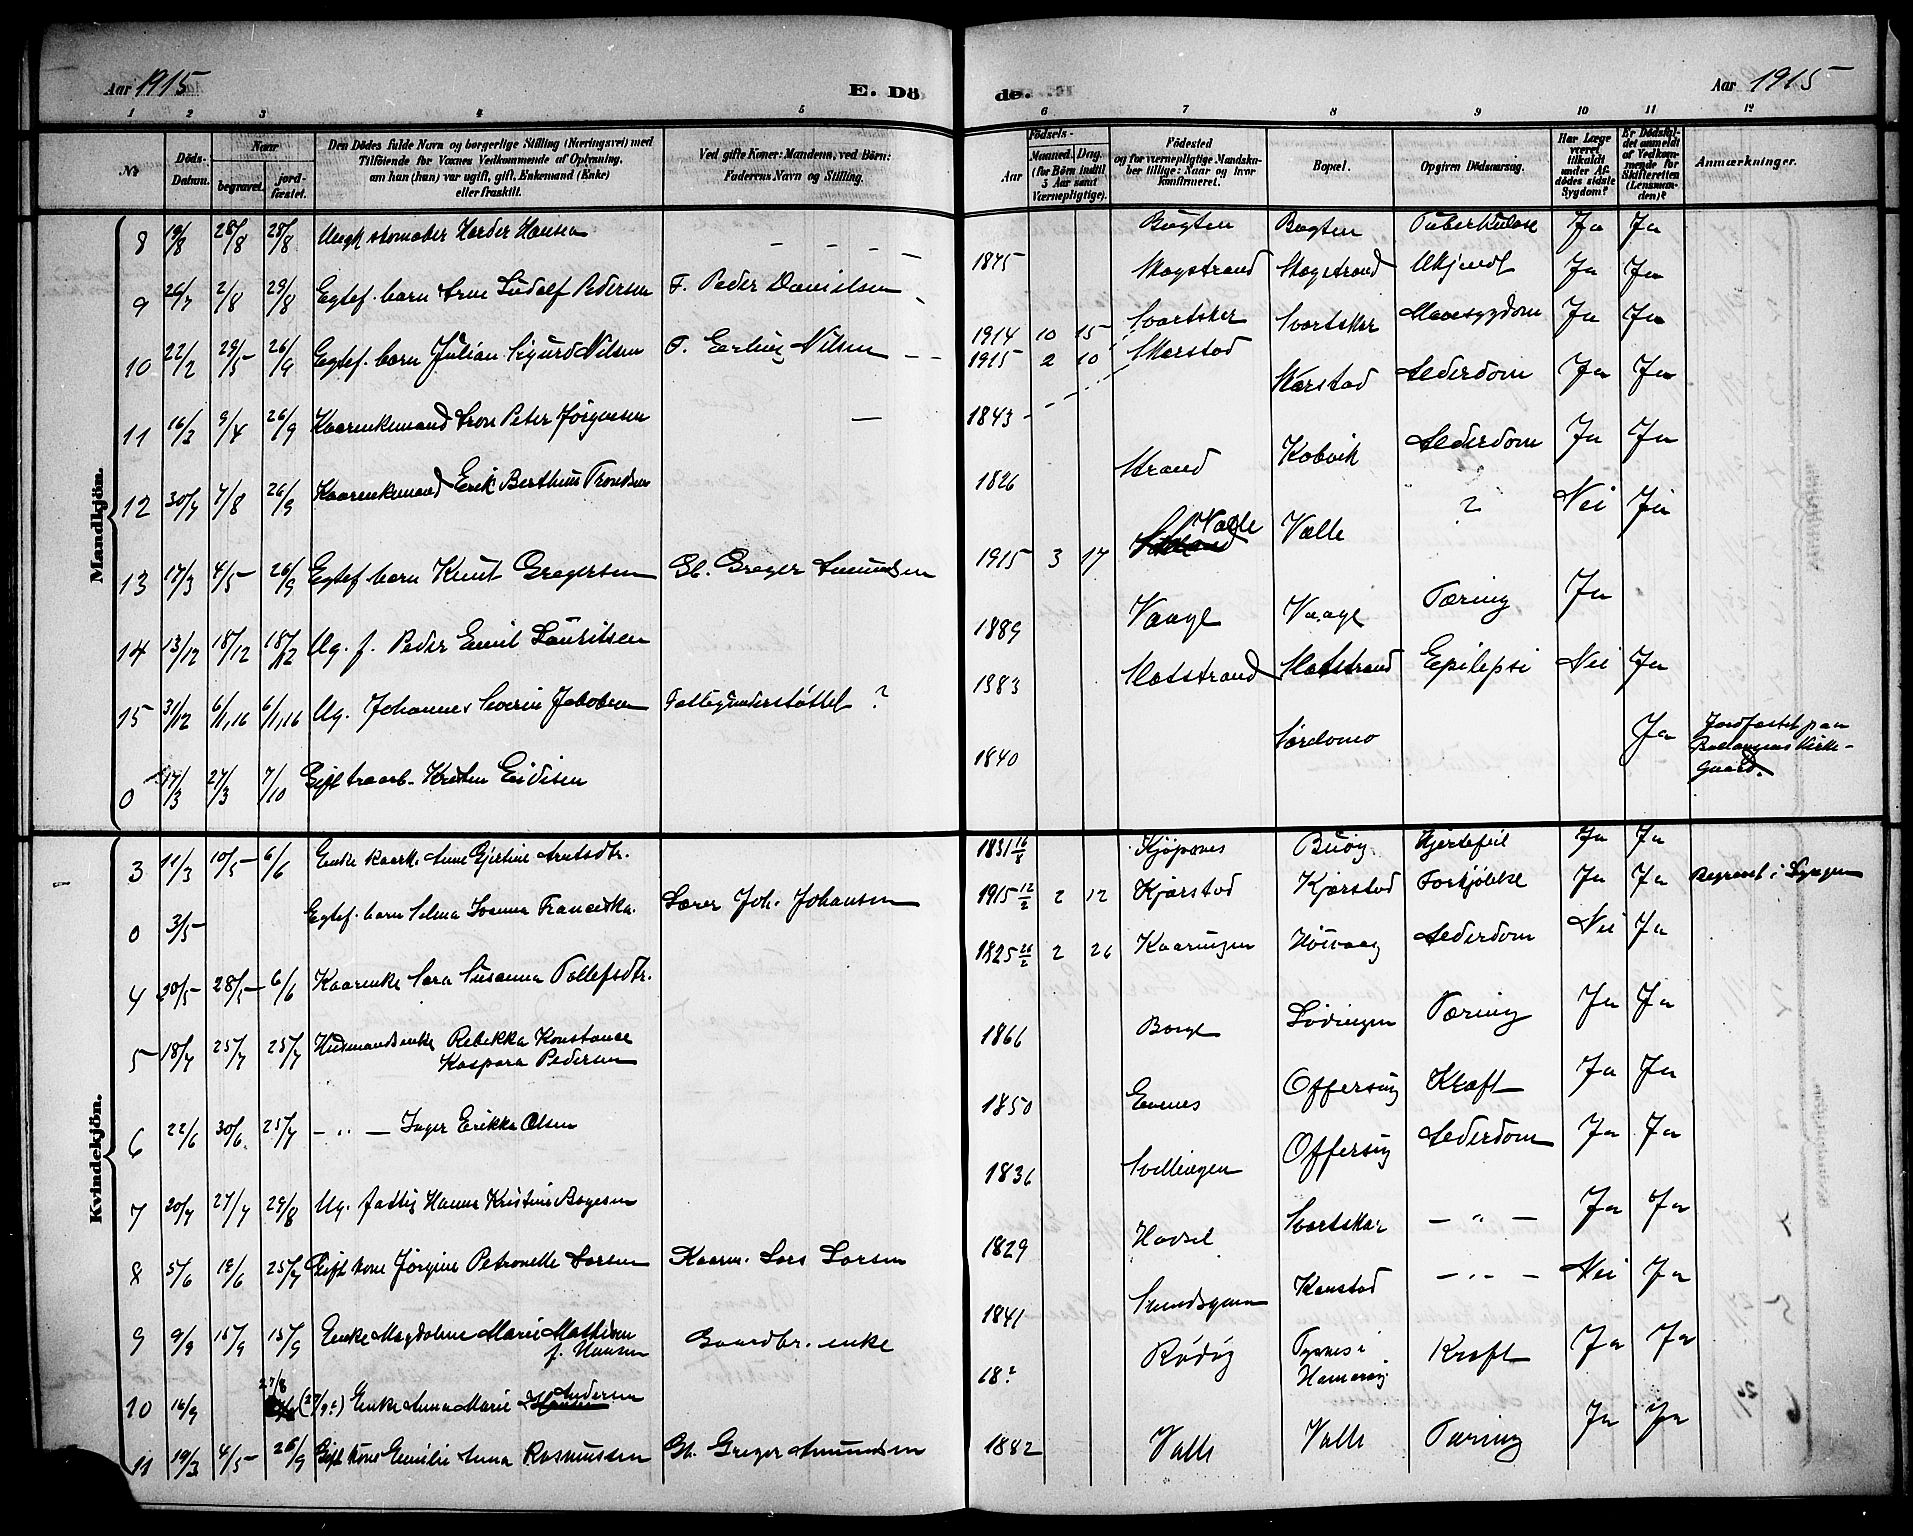 Aar 1915
E. Dö
de.
Aar 1915
1 2 3 4 5
6 7 8 9 10 11 12
No
Döds-Datum.
Naar
begravet.
jordfæstet.
Den Dödes fulde Navn og borgerlige Stilling (Næringsvei) med
Tilföiende for Voxnes Vedkommende af Oplysning,
om han (hun) var ugift, gift, Enkemand (Enke)
eller fraskilt.
Ved gifte Koner: Mandens, ved Börn:
Faderens Navn og Stilling.
Födsels-
Aar
Maaned. Dag.
(for Börn indtil
5 Aar samt
Værnepligtige).
Födested
og for værnepligtige Mandskaber tillige: Naar og hvor
konfirmeret.
Bopæl.
Opgiven Dödsaarsag.
Har Læge
været
tilkaldt
under Afdödes sidste
Sygdom?
Er Dödsfaldet anmeldt
af Vedkommende for
Skifteretten
(Lensmanden)?
Anmærkninger.
Mandkjön.
8 19/8 28/8 28/8 Hansen — — — 1875 Bugten Bugten Tuberkulose Ja Ja
9 26/7 2/8 29/8 Egtef. barn Arne Ludolf Pedersen F. Peder Danielsen 1914 10 15 Skogstrand Skogstrand Ukjendt Ja Ja
10 22/2 29/5 26/9 Egtef. barn Julian Sigurd Nilsen F. Erling Nilsen 1915 2 10 Svartskar Svartskar Mavesygdom Ja Ja
11 16/3 9/4 26/9 Kaarenkemand Aron Peter Jörgensen — 1843 Skarstad Skarstad Alderdom Ja Ja
12 30/7 7/8 26/9 Kaarenkemand Erik Bertheus Trondsen 1826 Strand Kobvik Alderdom Ja Ja
13 17/3 4/5 26/9 Egtef. barn Knut Gregersen Gb. Greger Amundsen 1915 3 17 Valle Valle ? Nei Ja
14 13/12 18/12 18/12 Ug. f. Peder Emil Lauritsen 1889 Vaage Vaage Tæring Ja
15 31/12 6/1,16 6/1,16 Ug. Johannes Severin Jakobsen Fattigunderstöttet ? 1883 Slotstrand Slotstrand Epilepsi Nei Ja
0 17/3 27/3 7/10 Gift Kristen 1840 Sördomo Ja Jordfæstet paa
Ballangens Kirke-
gaard.
Kvindekjön.
3 11/3 10/5 6/6 Enke kaark. Anne Gjertine Arntsdtr. 1831 16/8 Kjöpsnes Buöy Hjertefeil Ja Ja
0 3/5 Egtef. barn Selma Franciska. Lærer Joh. Johansen 1915 12/2 2 12 Kjærstad Kjærstad Forkjölelse Ja Ja Begravet i Lyngen
4 20/5 28/5 6/6 Kaarenke Sara Susanna Tollefsdtr. 1825 26/2 2 26 Kaaringen Alderdom Nei Ja
5 18/7 25/7 25/7 Husmandsenke Rebekka Konstance
Kaspara Pedersen 1866 Borge Lödingen Tæring Ja Ja
6 22/6 30/6 25/7 — „ — Inger Erikka Olsen 1850 Evenes Offersöy Kræft Ja Ja
7 20/7 27/7 29/8 Ug. fattig Hanna Kristine Bogesen 1836 Svellingen Offersöy Alderdom Ja Ja
8 5/6 12/6 25/7 Gift kone Jörgine Petronelle Larsen Kaarm. Lars Larsen 1829 Hadsel Svartskar — „ — Ja Ja
9 9/9 15/9 15/9 Enke Magdalena Marie Mathisen
f. Hansen Gaardbr. enke 1841 Kanstad — „ — Nei Ja
10 16/9 27/8 Enke Anna Marie Andersen 18? Rödöy Tysnes i
Hamaröy Kræft Ja Ja
11 19/3 4/5 26/9 Gift kone Emilie Anna Rasmussen Gb. Greger Amundsen 1882 Valle Valle Tæring Ja Ja